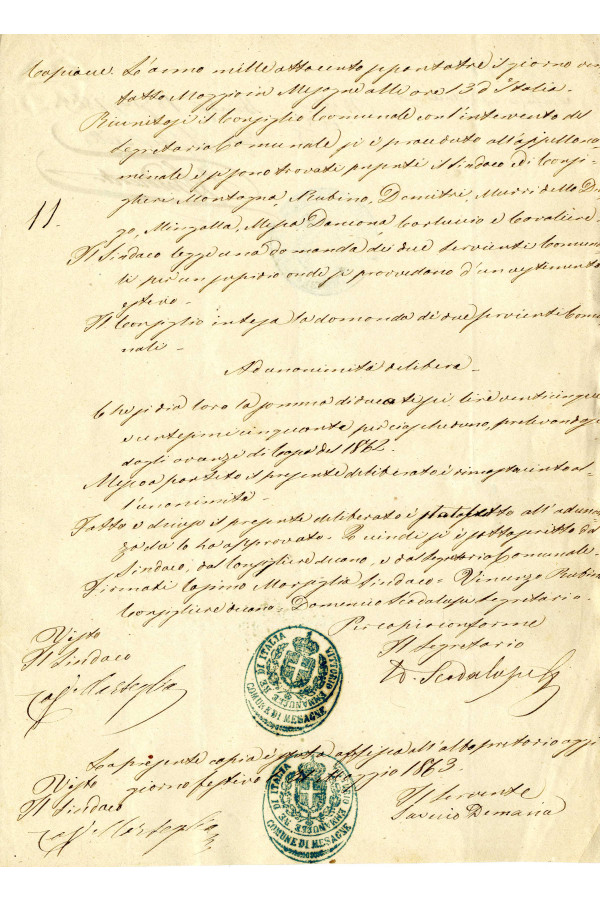 Copia L'anno mille ottocento sessantatre il giorno ven
totto Maggio in Mesagne alle ore 13 d'Italia.
Riunitosi il Consiglio Comunale coll'intervento del
Segretario Comunale si è proceduto all'appello no
minale e si sono trovati presenti il Sindaco ed i Consi
glieri Montagna, Rubino, Demitri, Murri dello Dia
go, Mingolla, Mesia Dancona Carluccio e Cavaliere
11.
Il Sindaco legge una domanda dei due Servienti Comuna
li per un sussidio onde si provvedano d'un vestimento
estivo.
Il Consiglio intesa la domanda di due servienti Comu
nali.
Ad unanimità delibera
Che si dia loro la somma di lire venticinque
e centesimi cinquanta per ciascheduno, prelevandosi
dagli avanzi di Cassa del 1862.
Messo a partito il presente deliberato è rimasto
l'unanimità.
Fatto e chiuso il presente deliberato è stato letto all'adunan
za che lo ha approvato. Quindi si è sottoscritto dal
Sindaco, dal Consigliere decano, e dal Segretario Comunale.
Firmati Cosimo Marsiglia Sindaco. Vincenzo Rubino
Consigliere decano. Domenico Scodalupe Segretario.
Per copia conforme
Visto
Il Sindaco
Il Segretario
D. Scodalupe
VITTORIO EMANUELE RE DI ITALIA
COMUNE DI MESAGNE
La presente copia è stata affissa all'albo pretorio oggi
giorno festivo Maggio 1863.
Visto
Il Sindaco
Il Serviente
Saverio Demaria
VITTORIO EMANUELE RE DI ITALIA
COMUNE DI MESAGNE